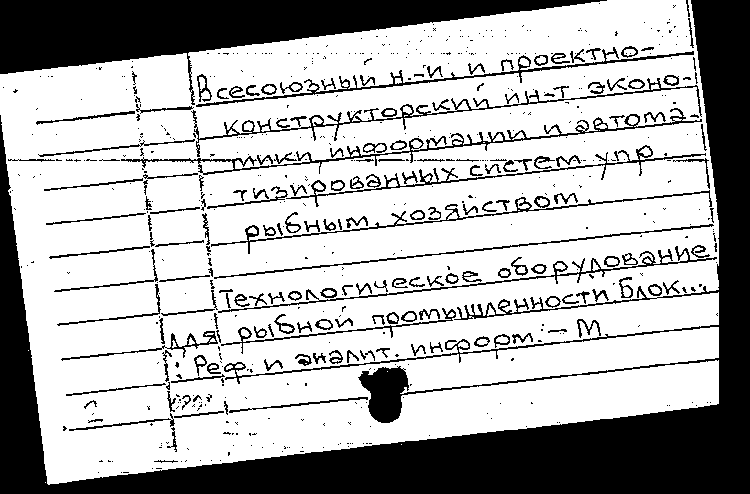 Всесоюзный н.-и. и проектно-
конструкторский ин-т эконо-
мики, информации и автома-
тизированных систем упр.
рыбным. хозяйством.
Технологическое оборудование
для рыбной промышленности. Блок...
: Реф. и аналит. информ. - М.